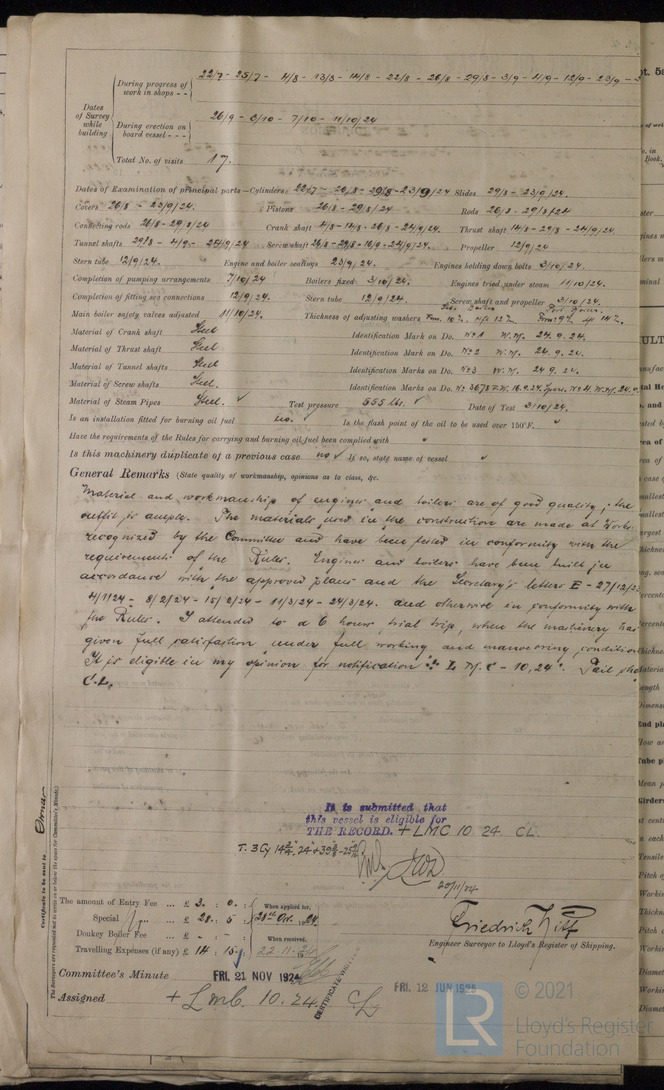 Dates of Survey while building
During progress of work in shops - - 22/7 - 25/7 - 4/8 - 13/8 - 14/8 - 22/8 - 26/8 - 29/8 - 3/9 - 4/9 - 12/9 - 23/9 -
During erection on board vessel - - - 26/9 - 3/10 - 7/10 - 11/10/24
Total No. of visits 17.
Dates of Examination of principal parts—Cylinders 22/7 - 26/8 - 29/8 - 23/9/24 Slides 29/8 - 23/9/24.
Covers 26/8 - 23/9/24. Pistons 26/8 - 29/8/24 Rods 26/8 - 29/8/24
Connecting rods 26/8 - 29/8/24 Crank shaft 4/8 - 14/8 - 26/8 - 24/9/24. Thrust shaft 14/8 - 29/8 - 24/9/24.
Tunnel shafts 29/8 - 4/9 - 24/9/24 Screw shaft 26/8 - 29/8 - 16/9 - 24/9/24. Propeller 12/9/24
Stern tube 12/9/24. Engine and boiler seatings 23/9/24. Engines holding down bolts 3/10/24.
Completion of pumping arrangements 7/10/24 Boilers fixed 3/10/24. Engines tried under steam 11/10/24.
Completion of fitting sea connections 12/9/24. Stern tube 12/9/24. Screw shaft and propeller 3/10/24.
Main boiler safety valves adjusted 11/10/24. Thickness of adjusting washers
Material of Crank shaft Steel Identification Mark on Do. No 1 W.N. 24.9.24.
Material of Thrust shaft Steel Identification Mark on Do. No 2 W.N. 24.9.24.
Material of Tunnel shafts Steel Identification Marks on Do. No 3 W.N. 24.9.24.
Material of Screw shafts Steel. Identification Marks on Do. No 3678 16.9.24. No 4 W.N. 24.9.
Material of Steam Pipes Steel. ✓ Test pressure 555 lbs. ✓ Date of Test 3/10/24.
Is an installation fitted for burning oil fuel no. Is the flash point of the oil to be used over 150°F. "
Have the requirements of the Rules for carrying and burning oil fuel been complied with "
Is this machinery duplicate of a previous case no ✓ If so, state name of vessel "
General Remarks (State quality of workmanship, opinions as to class, &c.
Material and workmanship of engines and boilers are of good quality; the
outfit is ample. The materials used in the construction are made at Works
recognized by the Committee and have been tested in conformity with the
requirements of the Rules. Engines and boilers have been built in
accordance with the approved plans and the Secretary's letters E - 27/12/23
4/1/24 - 8/2/24 - 15/2/24 - 11/3/24 - 24/3/24. and otherwise in conformity with
the Rules. I attended to a 6 hours trial trip, when the machinery has
given full satisfaction under full working and manoevring condition
It is eligible in my opinion for notification "+ L M C - 10,24".
C.L.
It is submitted that
this vessel is eligible for
THE RECORD. + LMC 10.24 CL.
T. 3 Cy
20/11/24
The amount of Entry Fee ... £ 3 : 0 :
Special ... £ 28 : 5
Donkey Boiler Fee ... £ - : -
Travelling Expenses (if any) £ 14 : 15
When applied for, 28th Oct. 1924
When received, 22-11-24
Engineer Surveyor to Lloyd's Register of Shipping.
Committee's Minute FRI. 21 NOV 1924
FRI. 12 JUN 1925
Assigned + LMC. 10.24. CL
CERTIFICATE WRITTEN
Certificate to be sent to
The Surveyors are requested not to write on or below the space for Committee's Minute.
LR
© 2021
Lloyd's Register
Foundation